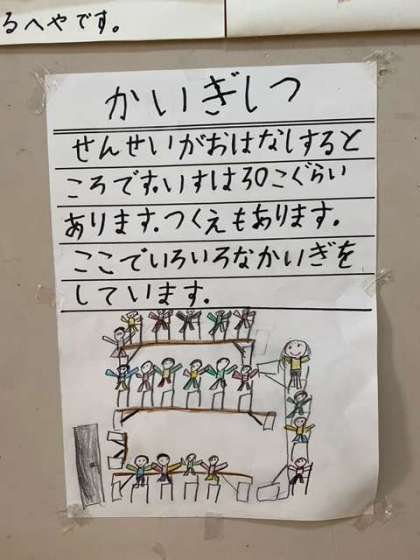 るへやです。
かいぎしつ
せんせいがおはなしすると
ころです。いすは30こぐらい
あります。つくえもあります。
ここでいろいろなかいぎを
しています。